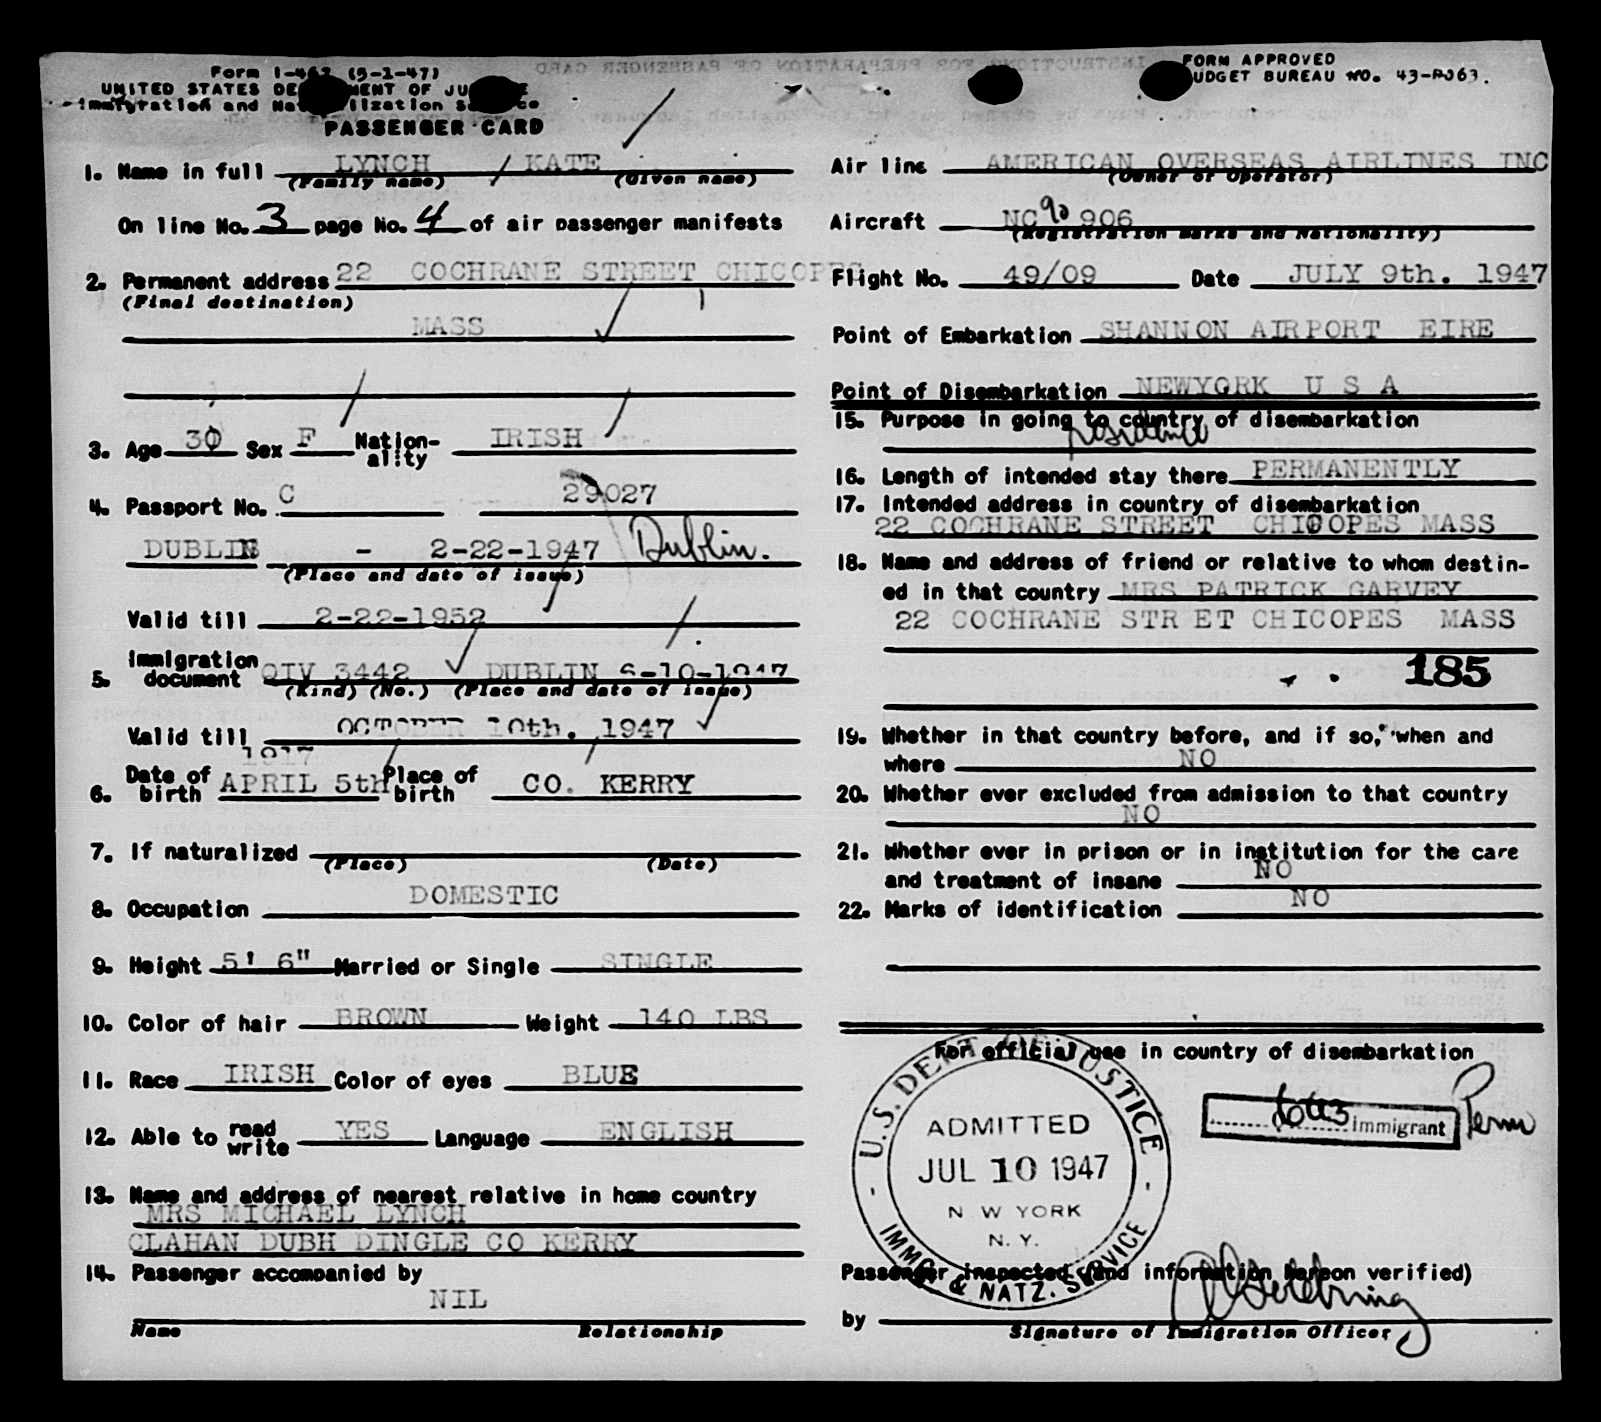 Form I-4 (5-1-47)
UNITED STATES DE MENT OF JU E
Immigration and Nat lization S ce
PASSENGER CARD
FORM APPROVED
BUDGET BUREAU NO. 43-R063.
1. Name in full LYNCH / KATE
(Family name) (Given name)
On line No. 3 page No. 4 of air passenger manifests
2. Permanent address 22 COCHRANE STREET CHICOPES
(Final destination)
MASS
3. Age 30 Sex F Nation-ality IRISH
4. Passport No. C 29027
DUBLIN - 2-22-1947 Dublin.
(Place and date of issue)
Valid till 2-22-1952
5. Immigration document QIV 3442 DUBLIN 6-10-1947
(Kind) (No.) (Place and date of issue)
Valid till OCTOBER 10th. 1947
1917
6. Date of birth APRIL 5th Place of birth CO. KERRY
7. If naturalized
(Place) (Date)
8. Occupation DOMESTIC
9. Height 5' 6" Married or Single SINGLE
10. Color of hair BROWN Weight 140 LBS
11. Race IRISH Color of eyes BLUE
12. Able to read write YES Language ENGLISH
13. Name and address of nearest relative in home country
MRS MICHAEL LYNCH
CLAHAN DUBH DINGLE CO KERRY
14. Passenger accompanied by
NIL
Name Relationship
Air line AMERICAN OVERSEAS AIRLINES INC
(Owner or Operator)
Aircraft NC 90 906
(Registration marks and Nationality)
Flight No. 49/09 Date JULY 9th. 1947
Point of Embarkation SHANNON AIRPORT EIRE
Point of Disembarkation NEWYORK U S A
15. Purpose in going to country of disembarkation
residence
16. Length of intended stay there PERMANENTLY
17. Intended address in country of disembarkation
22 COCHRANE STREET CHICOPES MASS
18. Name and address of friend or relative to whom destin-
ed in that country MRS PATRICK GARVEY
22 COCHRANE STR ET CHICOPES MASS
185
19. Whether in that country before, and if so, when and
where NO
20. Whether ever excluded from admission to that country
NO
21. Whether ever in prison or in institution for the care
and treatment of insane NO
22. Marks of identification NO
For official use in country of disembarkation
U.S. DEPT OF JUSTICE
ADMITTED
JUL 10 1947
N W YORK
N. Y.
IMMG & NATZ. SERVICE
immigrant Perm
Passenger inspected (and information hereon verified)
by
Signature of Immigration Officer